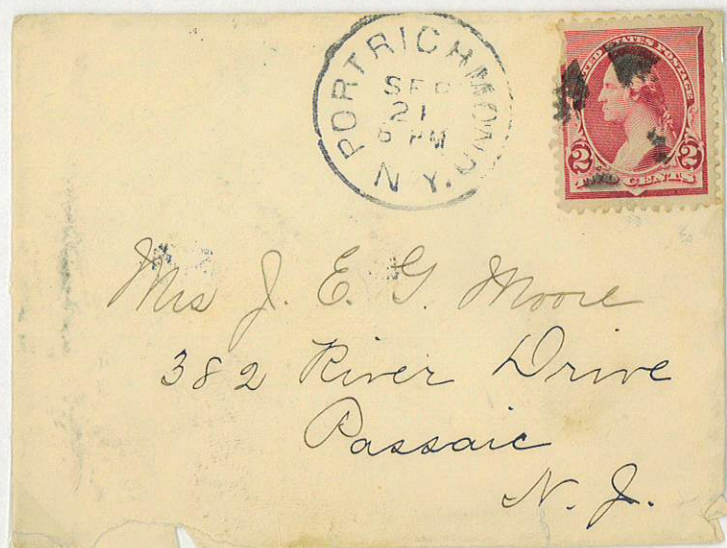 PORT RICHMOND
SEP
21
6 PM
N.Y.
UNITED STATES POSTAGE
2 2
TWO CENTS
Mrs J. E. G. Moore
382 River Drive
Passaic
N. J.